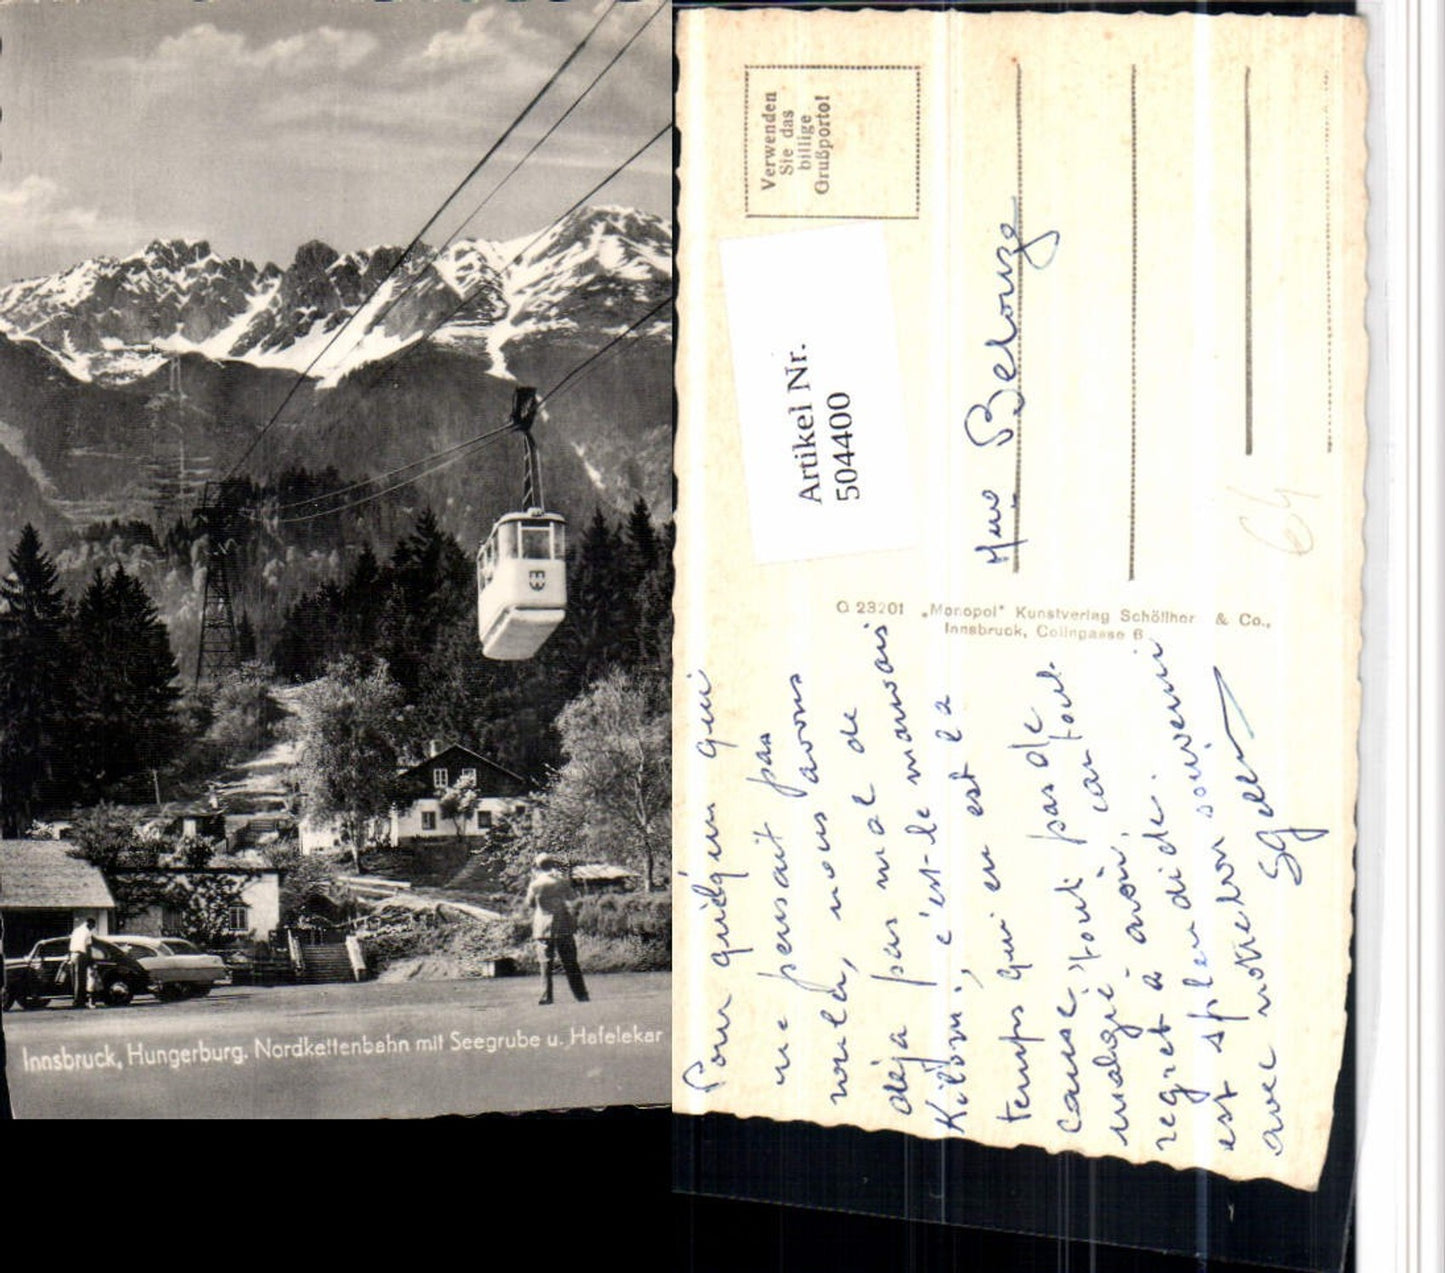 Innsbruck, Hungerburg. Nordkettenbahn mit Seegrube u. Hafelekar
Verwenden
Sie das
billige
Grußporto!
Artikel Nr.
504400
Belouze
64
O 23201 „Monopol" Kunstverlag Schöllhor & Co.,
Innsbruck, Colingasse 6
Pour quelqu'un qui
ne pensait pas
rouler, nous avons
déja pas mal de
Kilom., c'est le mauvais
temps qui en est la
cause, tout pas de
malgré tout car tout
regret à avoir
est splendide.
avec notre bon souvenir